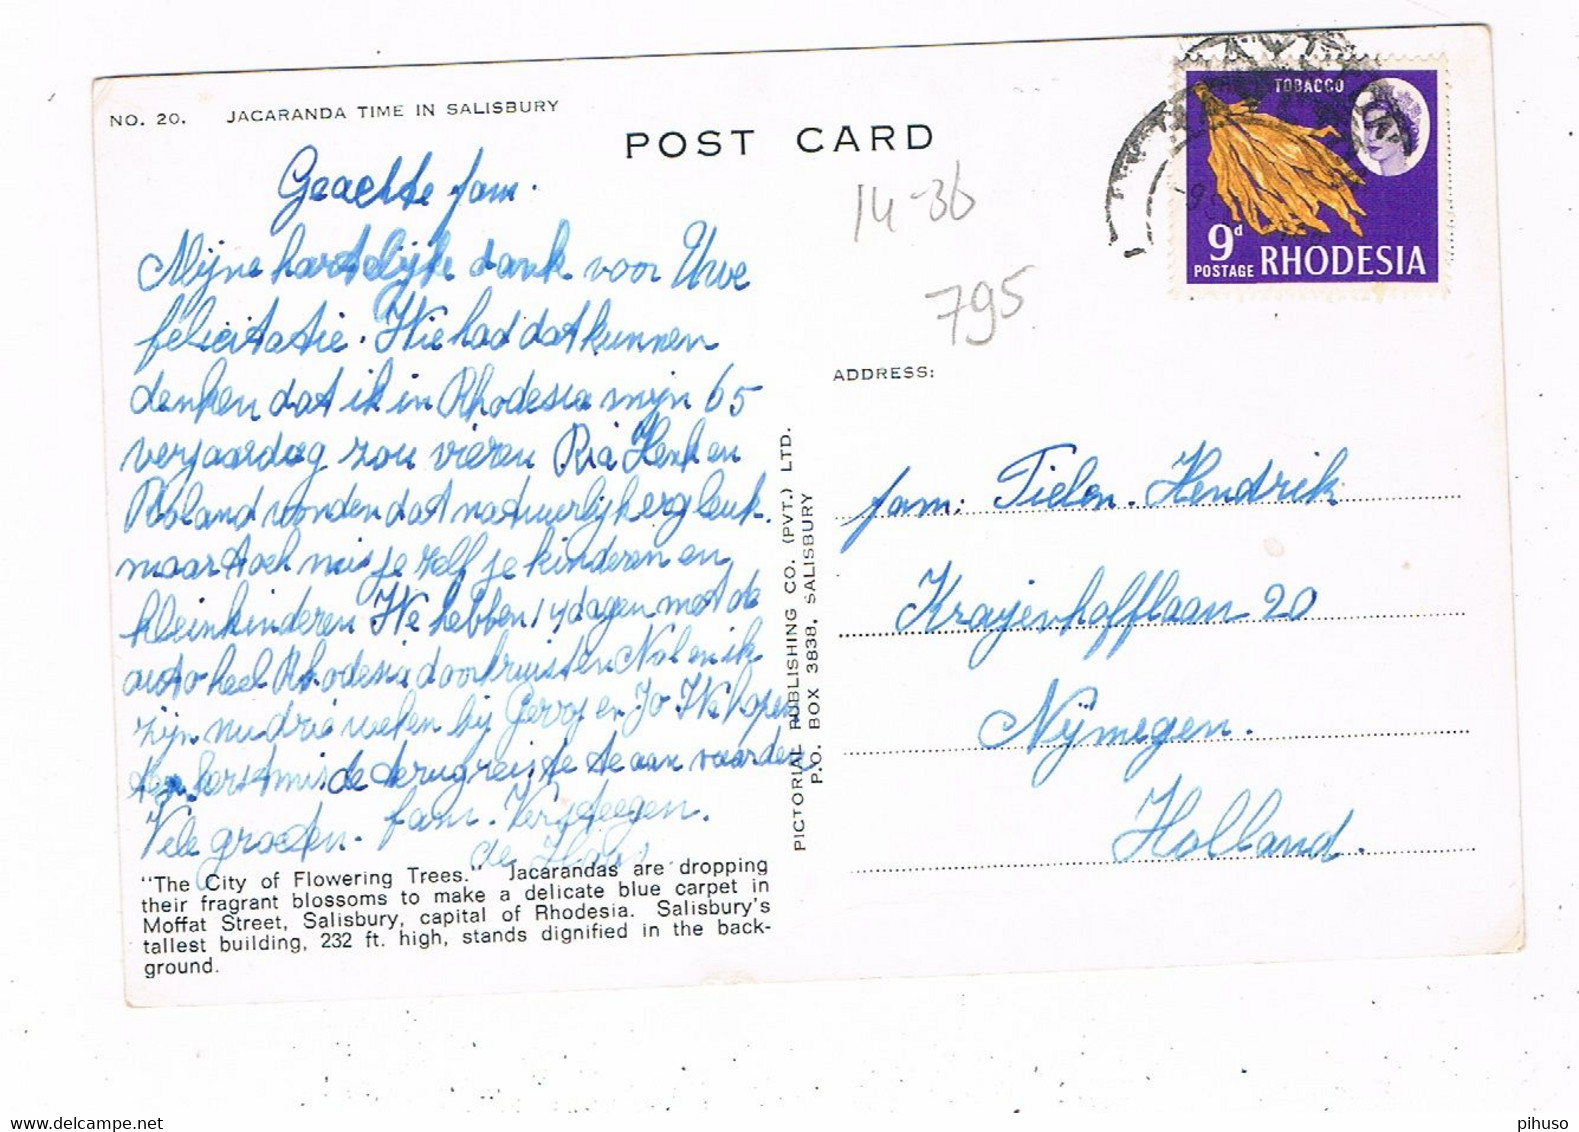 NO. 20. JACARANDA TIME IN SALISBURY
POST CARD
Geachte fam.
Mijne hartelijke dank voor Uwe
felicitatie. Wie had dat kunnen
denken dat ik in Rhodesia mijn 65
verjaardag zou vieren Ria Henk en
Roland vonden dat natuurlijk erg leuk.
maar toch mis je zelf je kinderen en
kleinkinderen We hebben 14 dagen met de
auto heel Rhodesia doorkruist en Nol en ik
zijn nu drie weken bij Gerry en Jo We hopen
kerstmis de terugreis te aan vaarden
Vele groeten. fam. Versteegen.
"The City of Flowering Trees." Jacarandas are dropping
their fragrant blossoms to make a delicate blue carpet in
Moffat Street, Salisbury, capital of Rhodesia. Salisbury's
tallest building, 232 ft. high, stands dignified in the back-
ground.
PICTORIAL PUBLISHING CO. (PVT.) LTD.
P.O. BOX 3838, SALISBURY
14-36
795
TOBACCO
9d
POSTAGE RHODESIA
ADDRESS:
fam: Tielen-Hendrik
Krayenhofflaan 20
Nijmegen.
Holland.
www.delcampe.net
pihuso